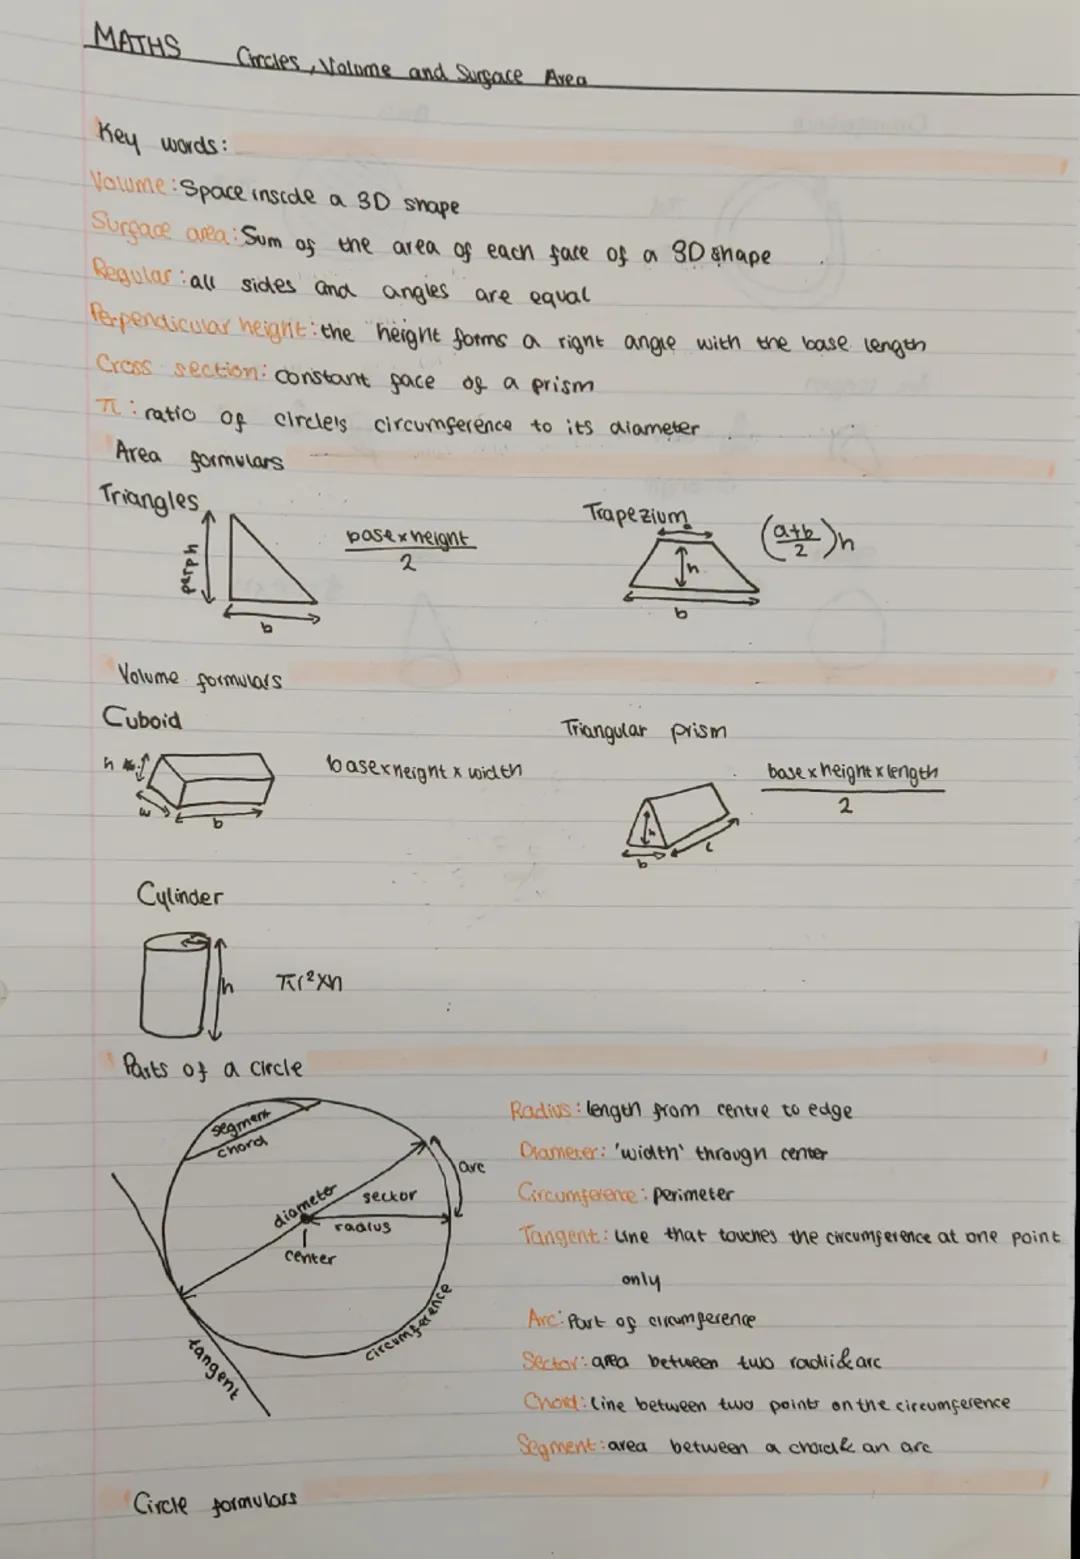 MATHS
Circles, Volume and Surface Area
Key words:
Volume: Space inside a 3D shape
Surface area: Sum of the area of each face of a 3D shape
Regular: all sides and angles are equal
Perpendicular height: the height forms a right angle with the base length
Cross section: constant face of a prism
π: ratio of circle's circumference to its diameter
Area formulars
Triangles
perp h
b
base x height
2
Trapezium
a
h
b
(a+b/2)h
Volume formulars
Cuboid
h
w
b
base x height x width
Triangular prism
h
b
L
base x height x length
2
Cylinder
h
πr²xh
Parts of a circle
segment
chord
arc
diameter
sector
radius
center
circumference
tangent
Radius: length from centre to edge
Diameter: 'width' through center
Circumference: perimeter
Tangent: Line that touches the circumference at one point
only
Arc: Part of circumference
Sector: area between two radii & arc
Chord: Line between two points on the circumference
Segment: area between a chord & an arc
Circle formulars